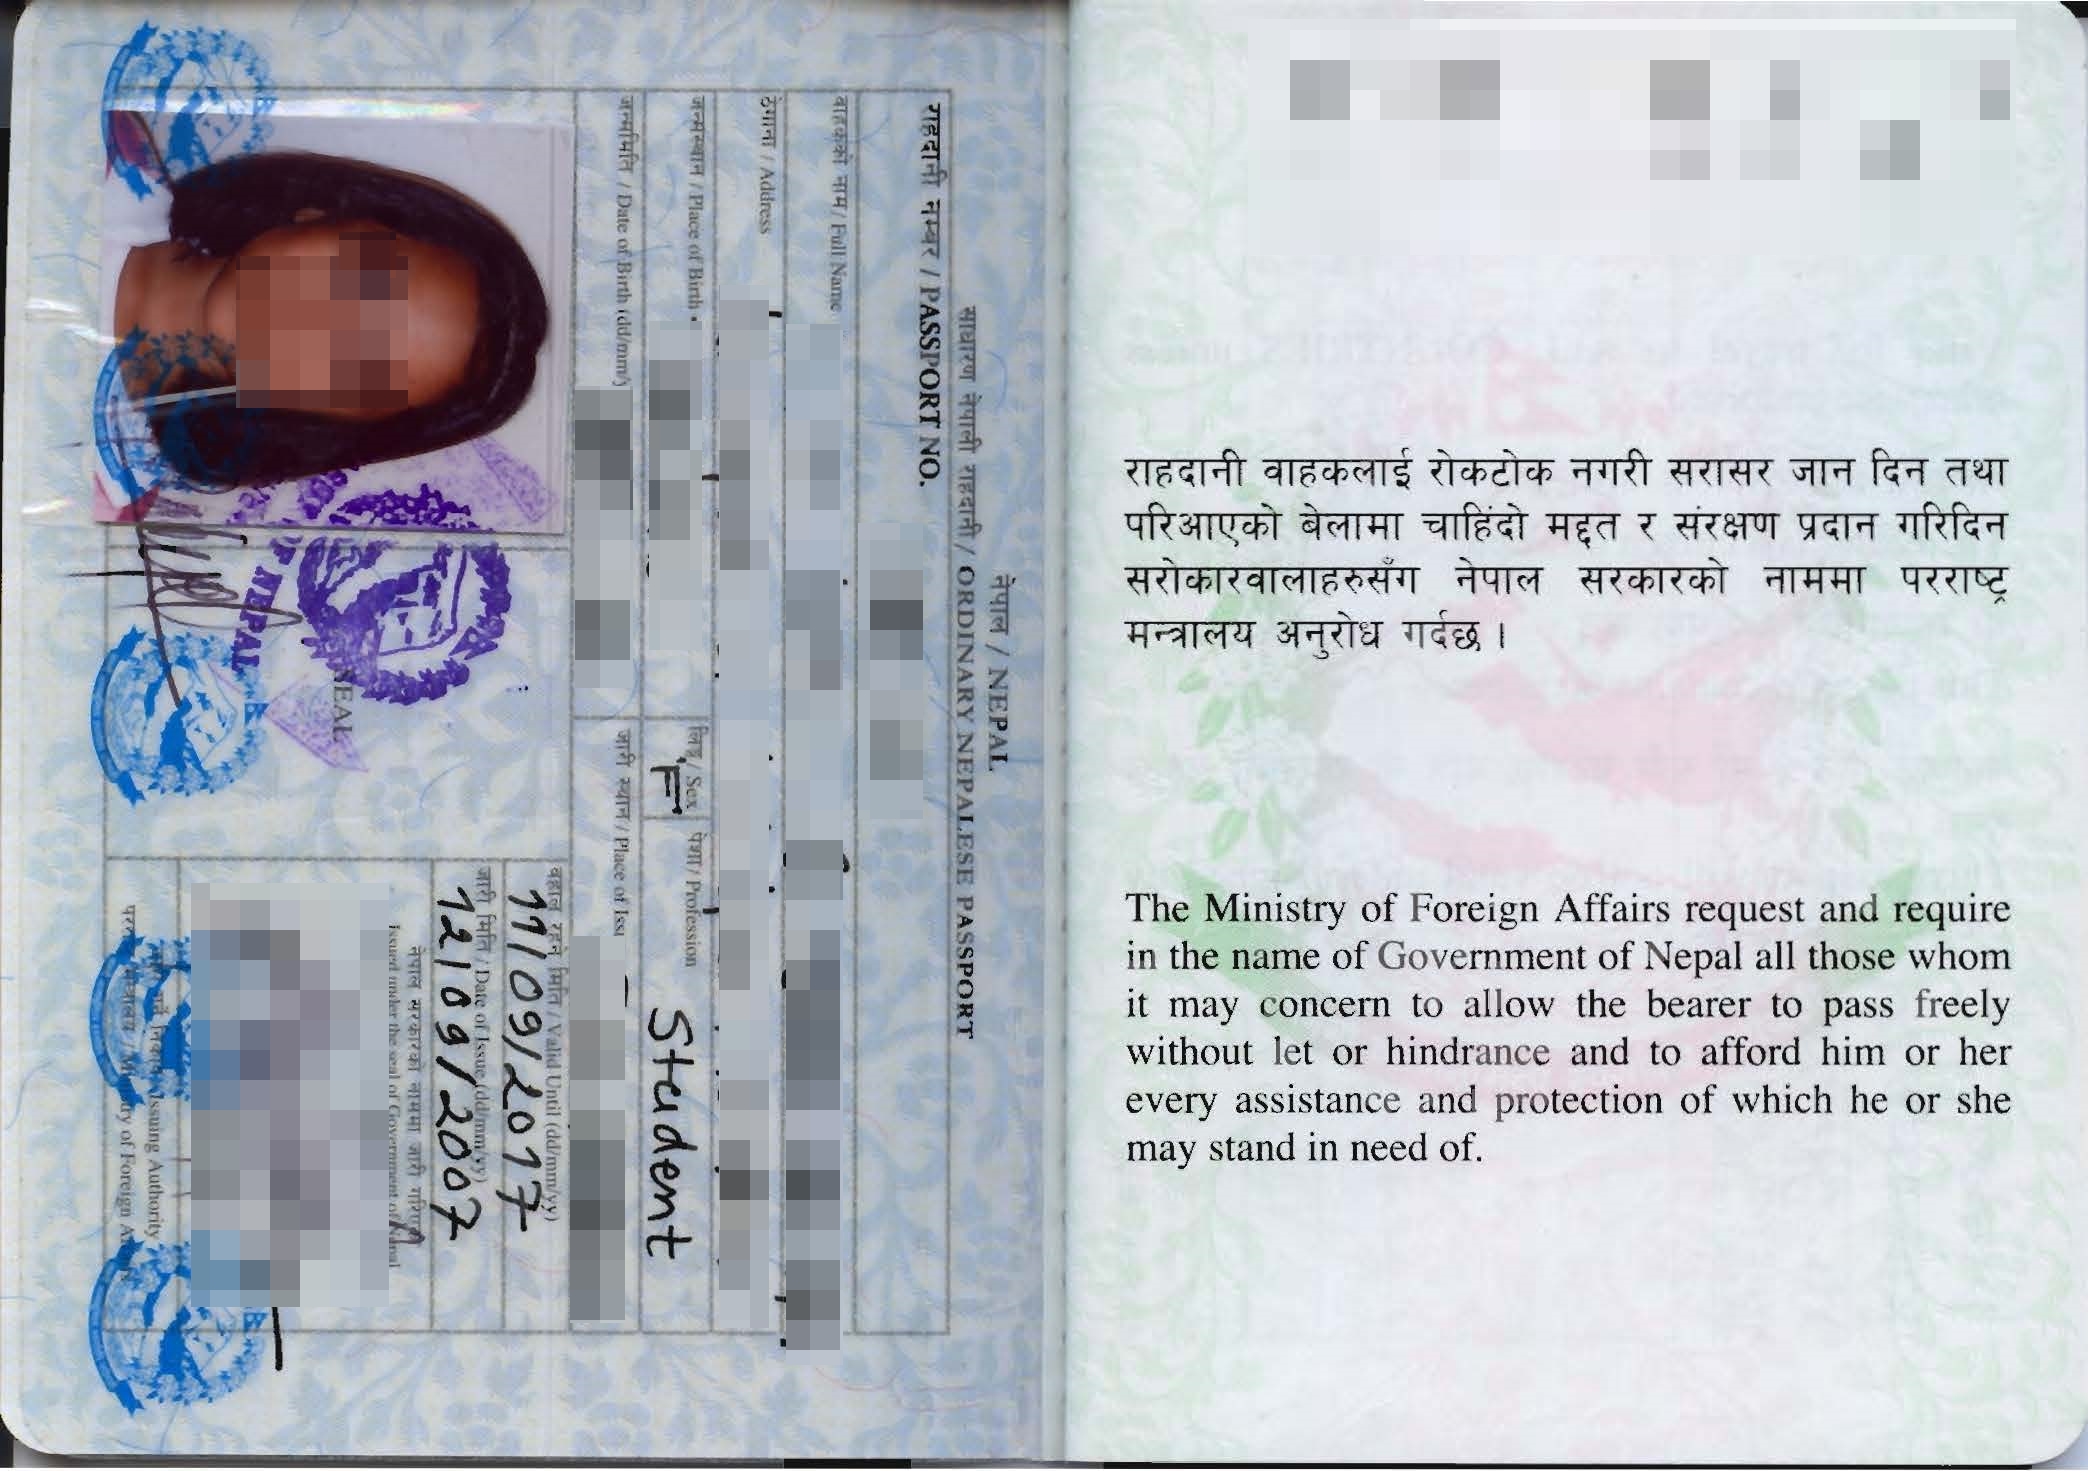 नेपाल / NEPAL
साधारण नेपाली राहदानी / ORDINARY NEPALESE PASSPORT
राहदानी नम्बर / PASSPORT NO.
वाहकको नाम / Full Name
ठेगाना / Address
जन्मस्थान / Place of Birth
लिङ्ग / Sex
F
पेशा / Profession
Student
जन्ममिति / Date of Birth (dd/mm/y
जारी स्थान / Place of Issu
बहाल रहने मिति / Valid Until (dd/mm/yy)
11/09/2017
जारी मिति / Date of Issue (dd/mm/yy)
12/09/2007
नेपाल सरकारको नाममा जारी गरिएको
Issued under the seal of Government of Nepal
SEAL
OF NEPAL
Issuing Authority
of Foreign
राहदानी वाहकलाई रोकटोक नगरी सरासर जान दिन तथा
परिआएको बेलामा चाहिंदो मद्दत र संरक्षण प्रदान गरिदिन
सरोकारवालाहरुसँग नेपाल सरकारको नाममा परराष्ट्र
मन्त्रालय अनुरोध गर्दछ ।
The Ministry of Foreign Affairs request and require
in the name of Government of Nepal all those whom
it may concern to allow the bearer to pass freely
without let or hindrance and to afford him or her
every assistance and protection of which he or she
may stand in need of.